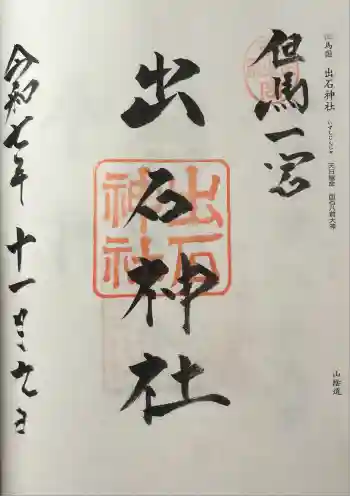 馬國 出石神社 いずしじんじゃ 天日槍命 出石八前大神
山陰道
但馬一宮
出石神社
出石神社
令和七年十一月九日